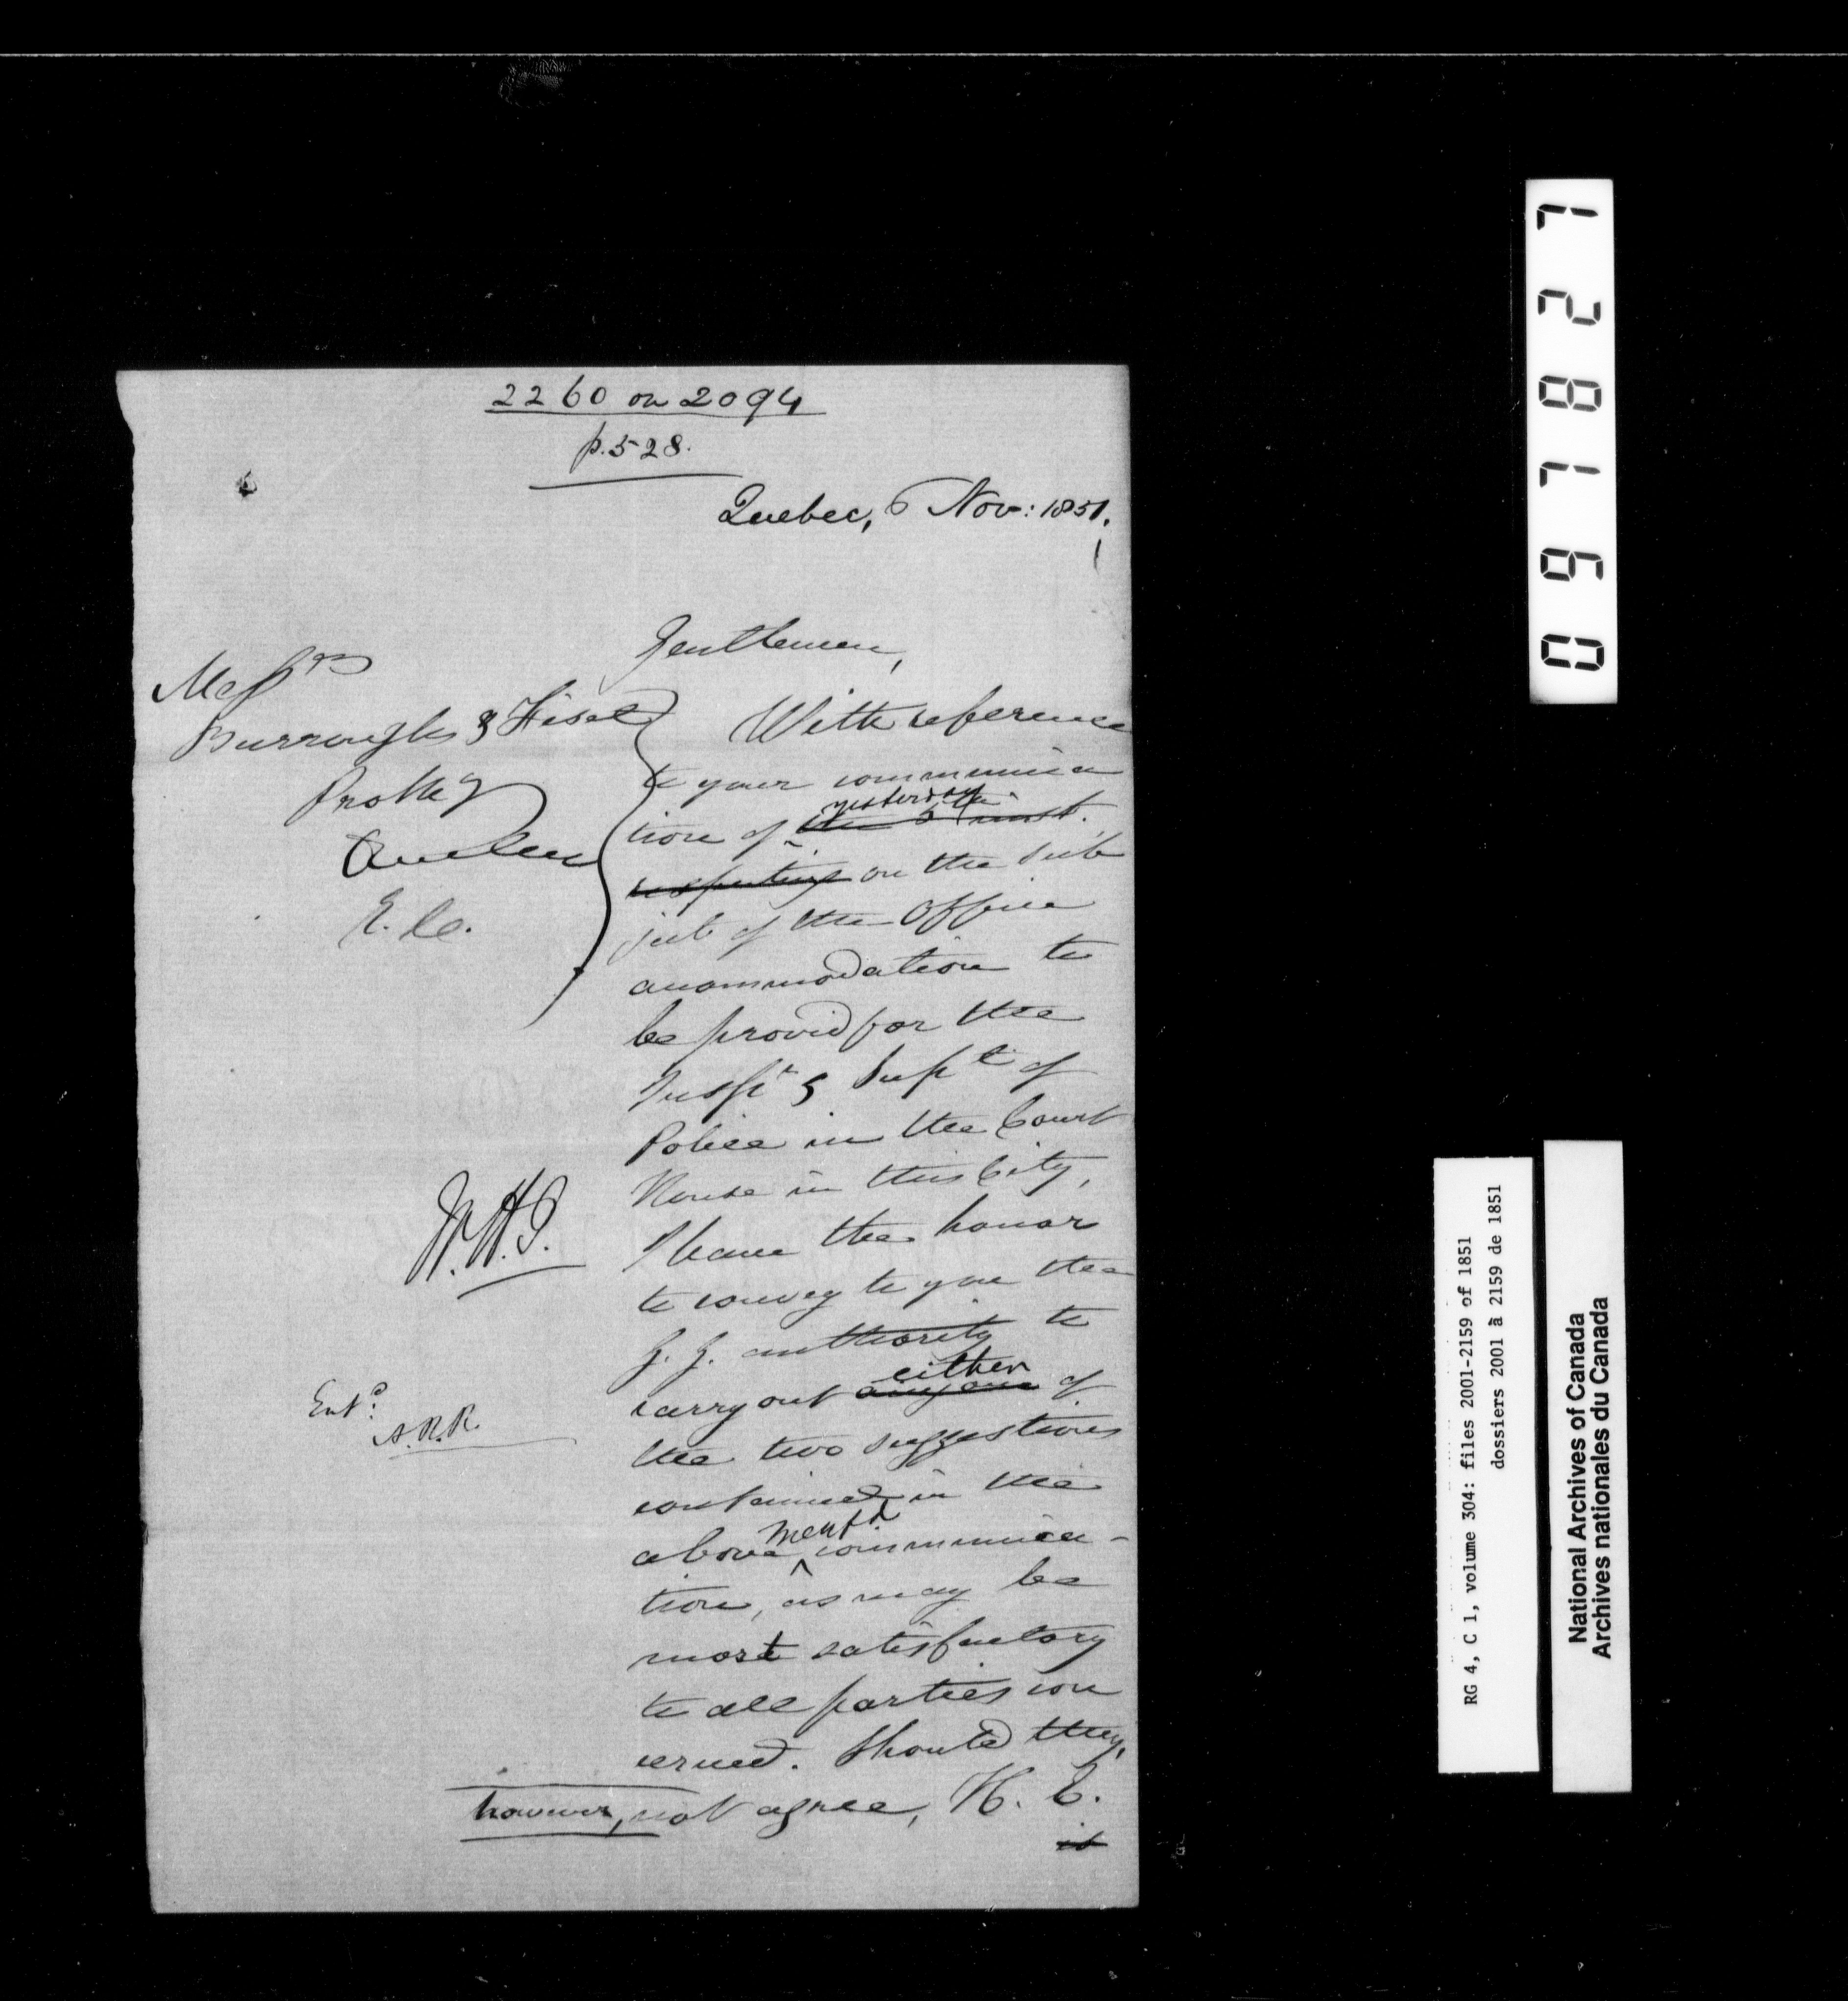 2260 on 2094
p. 528.
Quebec, 6 Nov: 1851.
Gentlemen,
Messrs
Burroughs & Fiset
Prothy
Quebec
E. C.
With reference
to your communica
tion of yesterday the 5 inst.
respecting on the sub
ject of the Office
accommodation to
be provid for the
Inspr & Supt of
Police in the Court
House in this City,
I have the honor
to convey to you the
G. G. authority to
carry out any one either of
the two suggestions
contained in the
above mentd communica-
tion, as may be
most satisfactory
to all parties con
cerned. Should they,
however, not agree, H. E.
is
W.H.G.
Entd:
A.R.R.
097827
RG 4, C 1, volume 304: files 2001-2159 of 1851
dossiers 2001 à 2159 de 1851
National Archives of Canada
Archives nationales du Canada